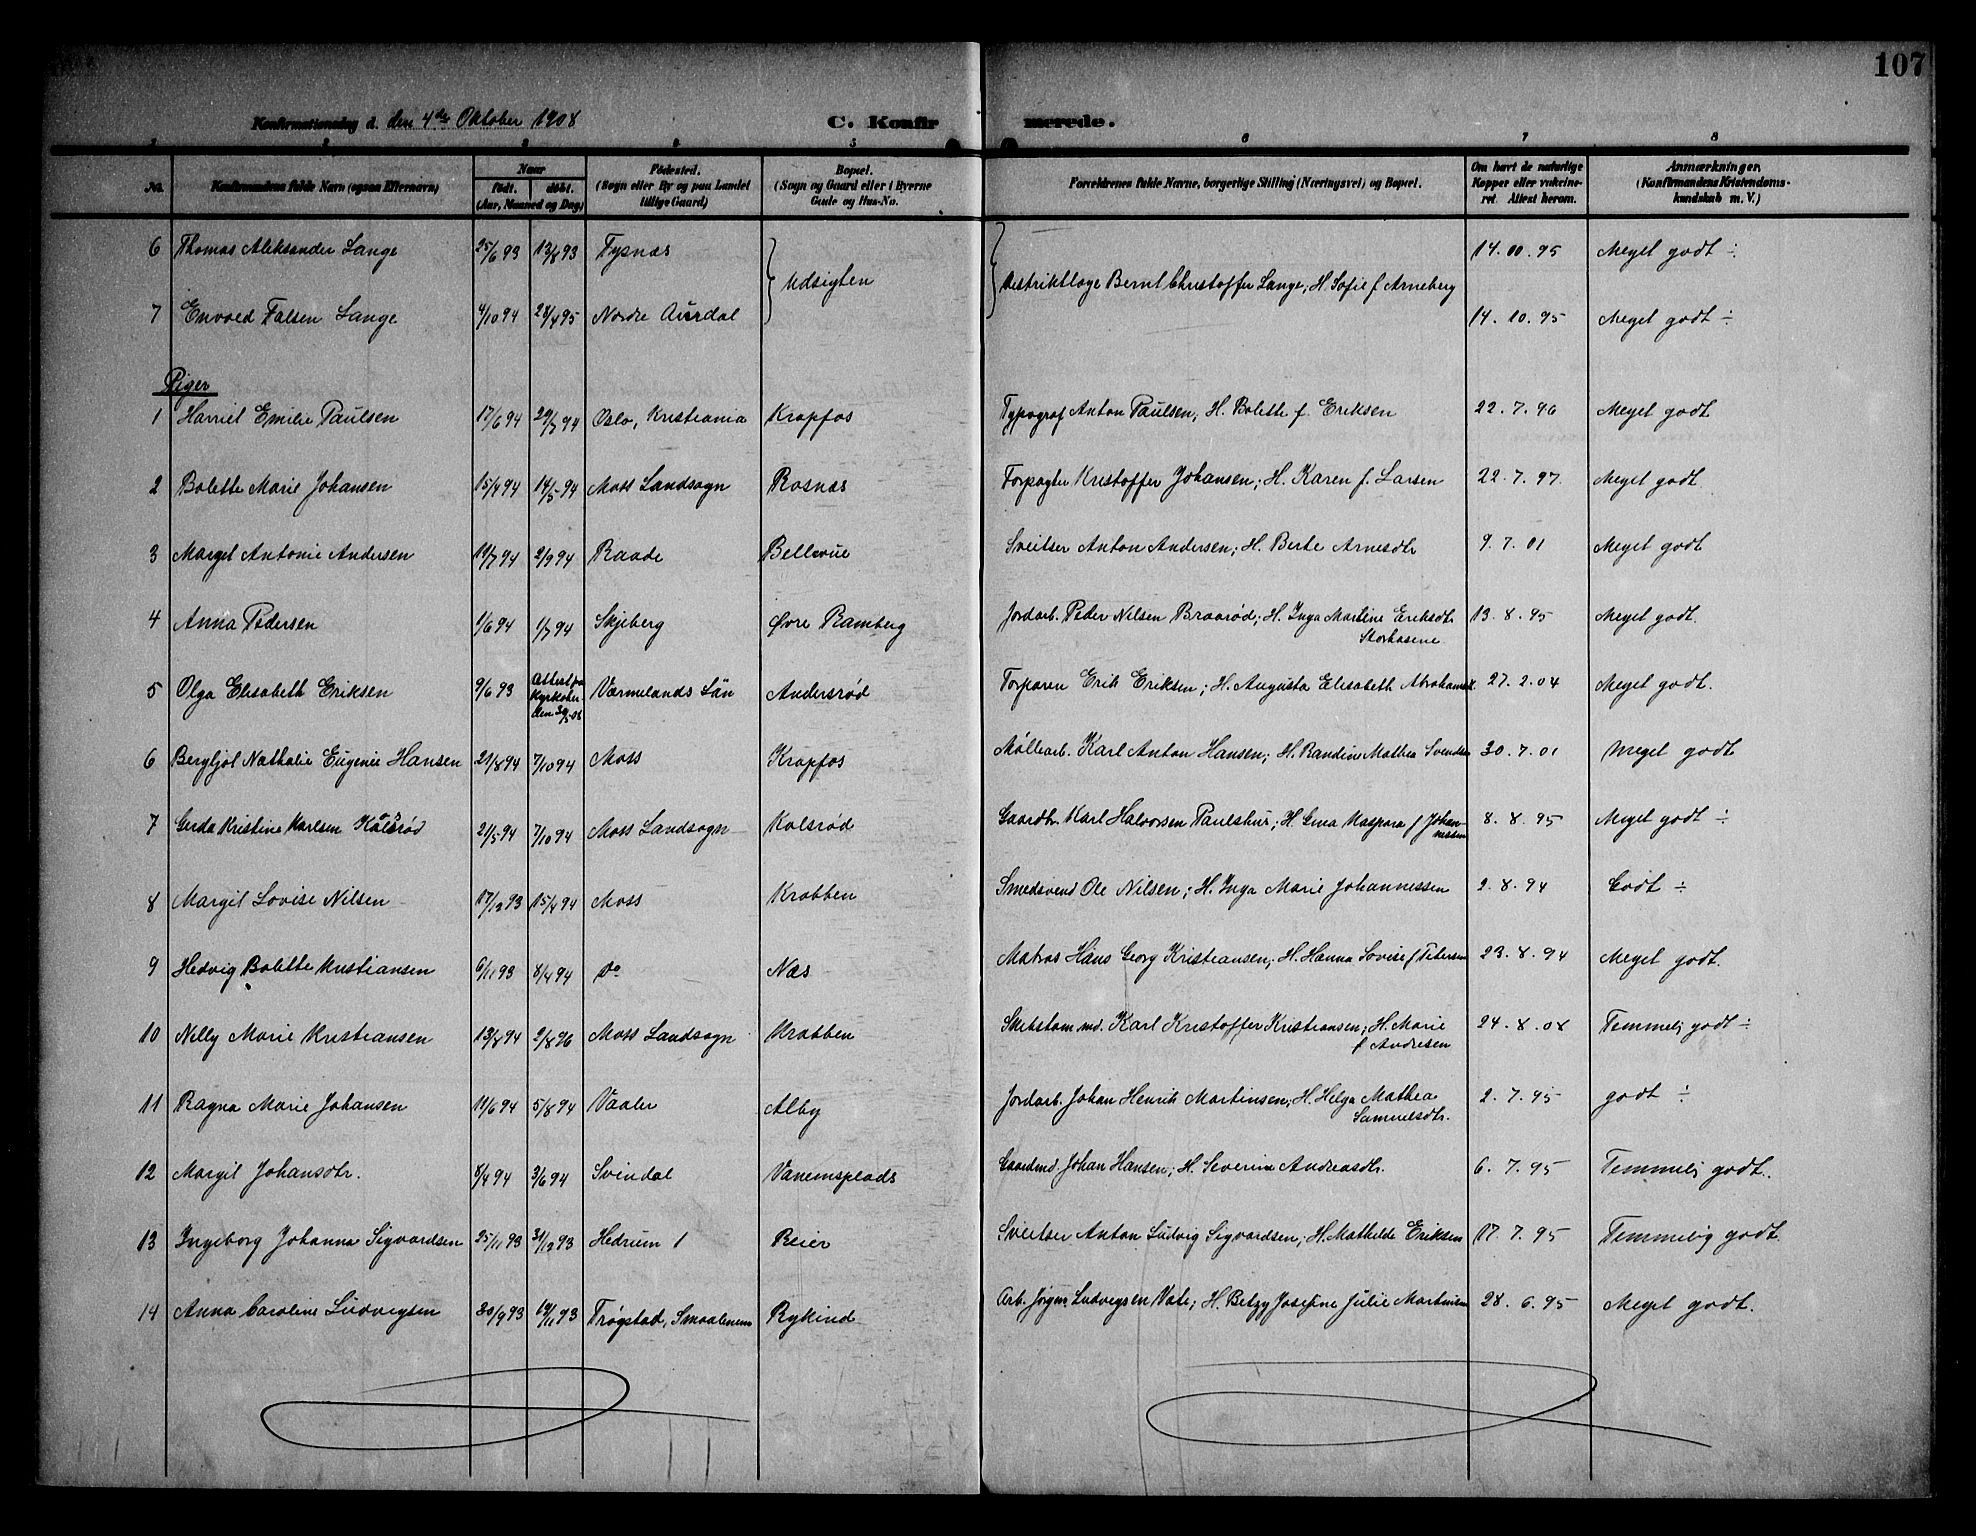 107
Konfirmationsdag d. den 4de Oktober 1908 C. Konfirmerede.
1 2 3 4 5 6 7 8
No. Konfirmandens fulde Navn (ogsaa Efternavn) Naar født. døbt. (Aar, Maaned og Dag) Fødested. (Sogn eller By og paa Landet tillige Gaard) Bopæl. (Sogn og Gaard eller i Byerne Gade og Hus-No. Forældrenes fulde Navne, borgerlige Stilling (Næringsvei) og Bopæl. Om havt de naturlige Kopper eller vakcineret. Attest herom. Anmærkninger. (Konfirmandens Kristendomskundskab m. V.)
6 Thomas Aleksander Lange 25/6 93 13/8 93 Tysnæs Udsigten Distriktlæge Bernt Christoffer Lange; H. Sofie f Arneberg 14. 10. 95 Meget godt ÷
7 Envold Falsen Lange 4/10 94 28/4 95 Nordre Aurdal 14. 10. 95 Meget godt ÷
Piger
1 Harriet Emilie Paulsen 17/6 94 29/7 94 Oslo, Kristiania Krapfos Typograf Anton Paulsen; H. Bolette f. Eriksen 22. 7. 96 Meget godt
2 Bolette Marie Johansen 15/4 94 14/5 94 Moss Landsogn Rosnæs Forpagter Kristoffer Johansen; H. Karen f. Larsen 22. 7. 97. Meget godt
3 Margit Antonie Andersen 19/7 94 2/9 94 Raade Bellevue Sveitser Anton Andersen; H. Berte Arnesdtr 9. 7. 01 Meget godt
4 Anna Pedersen 1/6 94 1/7 94 Skjeberg Øvre Ramberg Jordarb. Peder Nilsen Braarød; H. Inga Martine Eriksdtr Storhasene 13. 8. 95 Meget godt.
5 Olga Elisabeth Eriksen 9/6 93 Attest fra Kyrkoher. den 30/5 08 Värmelands Län Andersrød Torparen Erik Eriksen; H. Augusta Elisabeth Abrahamsd. 27. 2. 04 Meget godt.
6 Bergljot Nathalie Eugenie Hansen 21/8 94 7/10 94 Moss Krapfos Møllearb. Karl Anton Hansen; H. Randine Mathea Svendsen 30. 7. 01 Meget godt
7 Gerda Kristine Karlsen Kalsrød 21/5 94 7/10 94 Moss Landsogn Kolsrød Gaardbr. Karl Halvorsen Paulshus; H. Gina Kaspara f Johannessen 8. 8. 95 Meget godt ÷
8 Margit Lovise Nilsen 17/12 93 15/4 94 Moss Krabben Smedsvend Ole Nilsen; H. Inga Marie Johannessen 2. 8. 94 Godt ÷
9 Hedvig Bolette Kristiansen 6/11 93 8/4 94 do Næs Matros Hans Georg Kristiansen; H. Hanna Lovise f Petersen 23. 8. 94 Meget godt.
10 Nelly Marie Kristiansen 13/8 94 2/8 96 Moss Landsogn Krabben Skibstømmd. Karl Kristoffer Kristiansen; H. Marie f Andresen 24. 8. 08 Temmeli godt ÷
11 Ragna Marie Johansen 11/6 94 5/8 94 Vaaler Alby Jordarb. Johan Henrik Martinsen; H. Helga Mathea Samuelsdtr. 2. 7. 95 godt ÷
12 Margit Johansdtr. 8/4 94 3/6 94 Svindal Vanemsplads Gaardmd. Johan Hansen; H. Severine Andreasdtr. 6. 7. 95 Temmeli godt.
13 Ingeborg Johanna Sigvardsen 25/11 93 31/12 93 Hedrum Reier Sveitser Anton Ludvig Sigvardsen; H. Mathilde Eriksen 17. 7. 95 Temmelig godt.
14 Anna Caroline Ludvigsen 30/9 93 19/11 93 Trøgstad, Smaalenene Rykind Arb. Jørgen Ludvigsen Vate; H. Betzy Josefine Julie Martinsen 28. 6. 95 Meget godt.